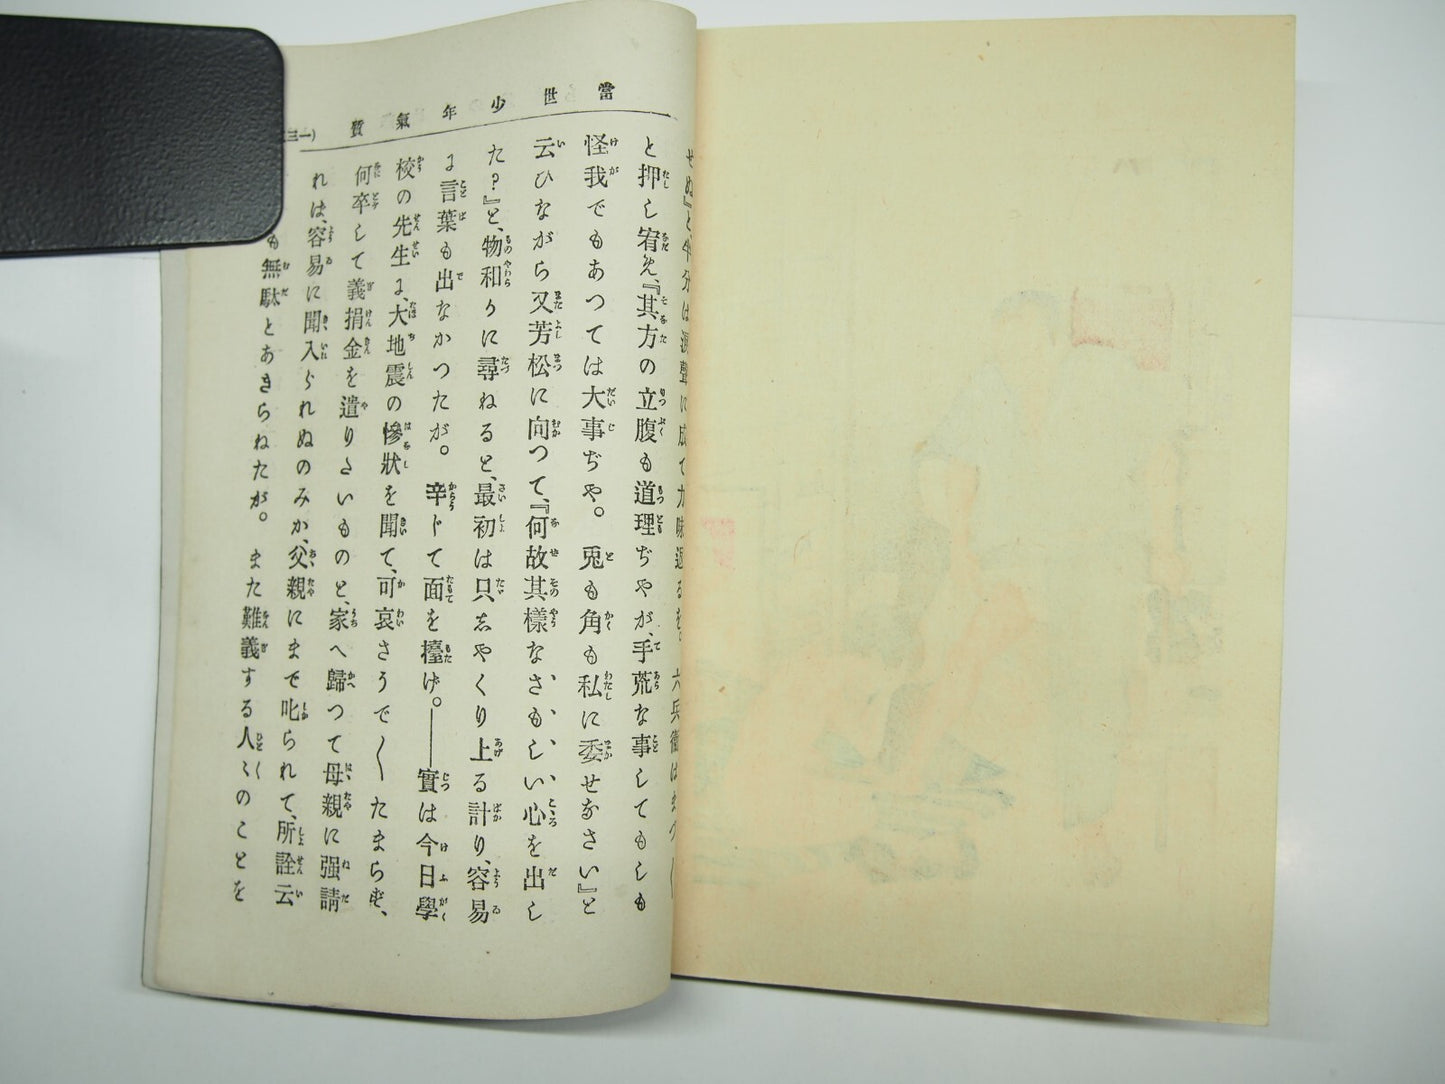 當世少年氣質
(一三
せぬ』と、半分は淚聲に成て力味返るを。六兵衞はまづ〱
と押し宥め、『其方の立腹も道理ぢやが、手荒な事してもしも
怪我でもあつては大事ぢや。兎も角も私に委せなさい』と
云ひながら又芳松に向つて、『何故其樣なさもしい心を出し
た?』と、物和かに尋ねると、最初は只しやくり上る計り、容易
に言葉も出なかつたが。辛じて面を擡げ。――實は今日學
校の先生に、大地震の慘狀を聞て、可哀さうで〱たまらず、
何卒して義捐金を遣りたいものと、家へ歸つて母親に强請
れは、容易に聞入られぬのみか、父親にまで叱られて、所詮云
も無駄とあきらねたが。また難義する人〻のことを